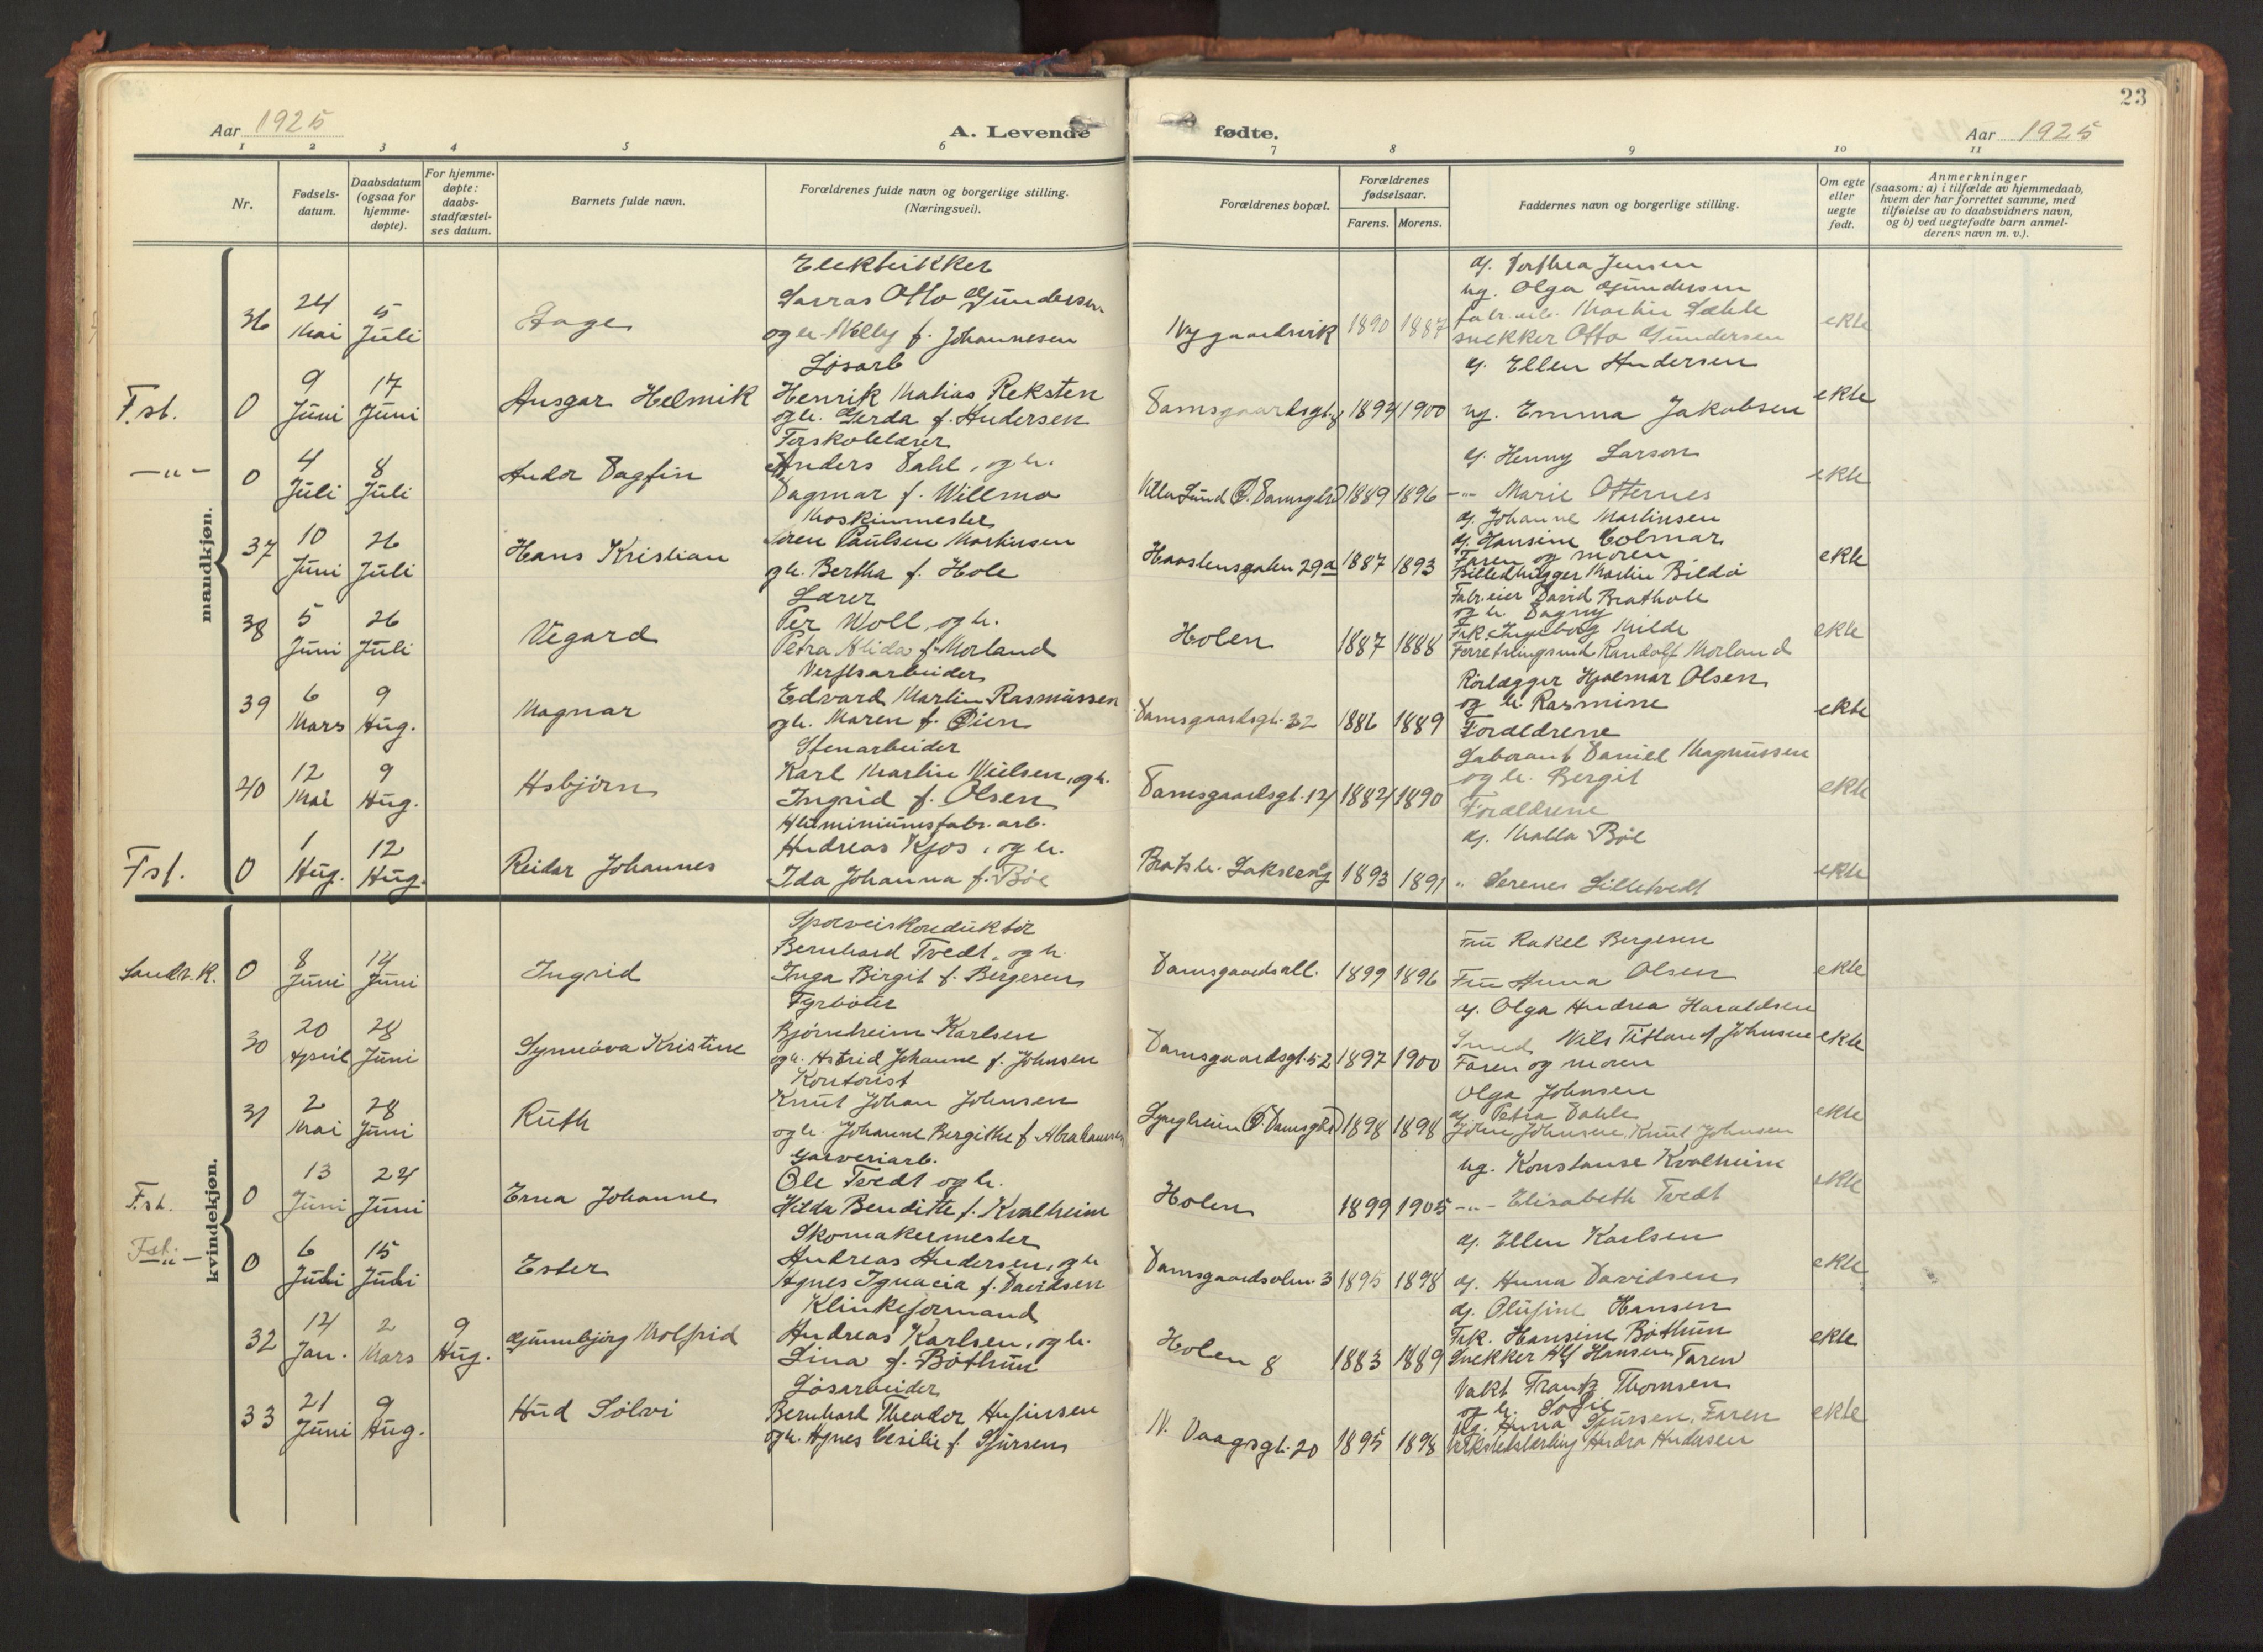 23
Aar 1925
A. Levende fødte.
Aar 1925
1 2 3 4 5 6 7 8 9 10 11
Nr.
Fødsels-
datum.
Daabsdatum
(ogsaa for
hjemme-
døpte).
For hjemme-
døpte:
daabs-
stadfæstel-
ses datum.
Barnets fulde navn.
Forældrenes fulde navn og borgerlige stilling.
(Næringsvei).
Forældrenes bopæl.
Forældrenes
fødselsaar.
Farens. Morens.
Faddernes navn og borgerlige stilling.
Om egte
eller
uegte
født.
Anmerkninger
(saasom: a) i tilfælde av hjemmedaab,
hvem der har forrettet samme, med
tilføielse av to daabsvidners navn,
og b) ved uegtefødte barn anmel-
derens navn m. v.).
mandkjøn.
36
24
Mai
5
Juli
Aage
Elektrikker
Larras Otto Gundersen
og h. Nelly f. Johannesen
Nygaardsvik
1890 1887
g. Dorthea Jensen
ug. Olga Gundersen
fabr. arb. Martin Dahle
snekker Otto Gundersen
ekte
F.st.
0
9
Juni
17
Juni
Ansgar Helmik
Løsarb
Henrik Matias Reksten
og h. Gerda f. Andersen
Damsgaardsgt. 8
1894 1900
g. Ellen Andersen
ug. Emma Jakobsen
ekte
—"—
0
4
Juli
8
Juli
Andor Dagfin
Forskolelærer
Anders Dahl, og h.
Dagmar f. Willmo
Villa Lund Ø. Damsgård
1889 1896
g. Henny Larson
—"— Marie Otternes
ekte
37
10
Juni
26
Juli
Hans Kristian
Maskinmester
Søren Paulsen Martinsen
og h. Bertha f. Hole
Haastensgaten 29a
1887 1893
g. Johanne Martinsen
g. Hansine Colmar
Faren og moren
Billedhugger Martin Bildø
ekte
38
5
Juni
26
Juli
Vegard
Lærer
Per Woll, og h.
Petra Alida f. Morland
Holen
1887 1888
Fabr.eier David Brathole
og h. Dagny
Frk. Ingeborg Milde
Forretningsmd Randolf Morland
ekte
39
6
Mars
9
Aug.
Magnar
Verftsarbeider
Edvard Martin Rasmussen
og h. Maren f. Øien
Damsgaardsgt. 32
1886 1889
Rørlægger Hjalmar Olsen
og h. Rasmine
Forældrene
ekte
40
12
Mai
9
Aug.
Asbjørn
Stenarbeider
Karl Martin Nielsen, og h.
Ingrid f. Olsen
Damsgaardsgt. 14
1882 1890
Laborant Daniel Magnussen
og h. Bergit
Forældrene
ekte
Fst.
0
1
Aug.
12
Aug.
Reidar Johannes
Aluminiumsfabr. arb.
Andreas Kjos, og h.
Ida Johanna f. Bøe
Bratsh. Lakseeng
1893 1891
g. Malla Bøe
" Serenes Lilletvedt
ekte
kvindekjøn.
Sandv. K.
0
8
Juni
14
Juni
Ingrid
Sporveiskonduktør
Bernhard Tvedt, og h.
Inga Birgit f. Bergesen
Damsgaardsall.
1899 1896
Fru Rakel Bergesen
Fru Anna Olsen
ekte
30
20
April
28
Juni
Synneøva Kristine
Fyrbøter
Bjørnheim Karlsen
og h. Astrid Johanne f. Johnsen
Damsgaardsgt. 52
1897 1900
g. Olga Andrea Haraldsen
Smed Nils Tittland Johnsen
Faren og moren
ekte
31
2
Mai
28
Juni
Ruth
Kontorist
Knut Johan Johnsen
og h. Johanne Bergithe f. Abrahamsen
Lyngheim Ø. Damsgård
1898 1898
Olga Johnsen
g. Petra Dahle
John Johnsen, Knut Johnsen
ekte
F.st.
0
13
Juni
24
Juni
Erna Johanne
Garveriarb.
Ole Tvedt og h.
Hilda Benditte f. Kvalheim
Holen
1899 1905
ug. Konstanse Kvalheim
—"— Elisabeth Tvedt
ekte
Fst.
—"—
0
6
Juli
15
Juli
Ester
Skomakermester
Andreas Andersen, og h
Agnes Ignacia f. Davidsen
Damsgaardsolm. 3
1895 1898
g. Ellen Karlsen
g. Anna Davidsen
ekte
32
14
Jan.
2
Mars
9
Aug.
Gunnbjørg Molfrid
Klinkeformand
Andreas Karlsen, og h.
Lina f. Bøthun
Holen 8
1883 1889
g. Olufine Hansen
Frk. Hansine Bøthun
Snekker Alf Hansen, Faren
ekte
33
21
Juni
9
Aug.
Aud Sølvi
Løsarbeider
Bernhard Theodor Anfinsen
og h. Agnes Cesilie f. Sjursen
N. Vaagsgt. 20
1895 1898
Vakt. Frantz Thomsen
og h. Sofie
g. Anna Sjursen, Faren
Verkstedslærling Andro Andersen
ekte